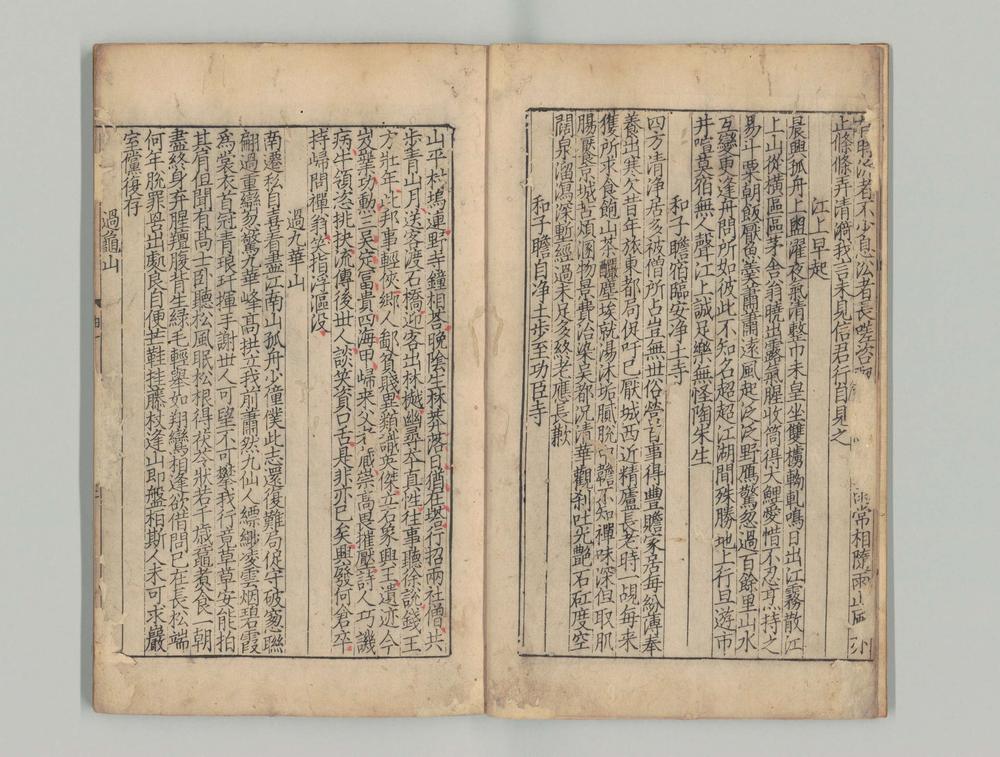 者不少息訟者長
止條條弄清漪我言未見信君行自見之
江上早起
晨興孤舟上盥濯夜氣清整巾未皇坐雙櫓軋軋鳴日出江霧散江
上山從橫區區茅舍翁曉出露氣腥收筒得大鯉愛惜不忍烹持之
易斗粟朝飯厭魚羹肅肅遠風起泛泛野鴈驚忽過百餘里山水
互變更逢舟問所如彼此不知名超超江湖間殊勝地上行旦遊市
井喧莫宿無人聲江上誠足樂無怪陶朱生
和子瞻宿臨安淨土寺
四方清淨居多被僧所占豈無世俗營百事得豐贍家居每紛薄奉
養出寒欠昔年旅東都局促吁已厭城西近精廬長老時一覘每来
獲所求食飽山茶釅塵埃就湯沐垢膩脫巾韂不知禪味深但取肌
腸饜京城苦煩溷物景費治染泉都況清華觀刹吐光艷石矼度空
闊泉溜瀉深塹經過未足多終老應長歉
和子瞻自淨土步至功臣寺
山平村塢連野寺鐘相荅晚陰生林莽落日猶在塔行招兩社僧共
步青山月送客渡石橋迎客出林樾幽尋本真性往事聽徐說錢王
方壯年此邦事輕俠鄉人鄙貧賤異類識英傑立石象興王遺迹今
岌嶪功勳三吳定富貴四海甲歸来父老藏崇高畏摧壓詩人巧譏
病牛領恣挑抉流傳後世人談笑資口舌是非亦已矣興發何倉卒
持歸問禪翁笑指浮漚没
過九華山
南遷私自喜看盡江南山孤舟少僮僕此志還復難局促守破窻聯
翩過重巒忽驚九華峰高拱立我前蕭然九仙人縹緲凌雲烟碧霞
爲裳衣首冠青琅玕揮手謝世人可望不可攀我行竟草草安能拍
其肩但聞有高士卧聽松風眠松根得茯苓狀若千歲黿煮食一朝
盡終身弃腥羶腹背生綠毛輕舉如翔鸞相逢欲借問已在長松端
何年脫罪罟出處良自便芒鞋挂藤杖逢山即盤桓斯人未可求巖
室儻復存
過龜山